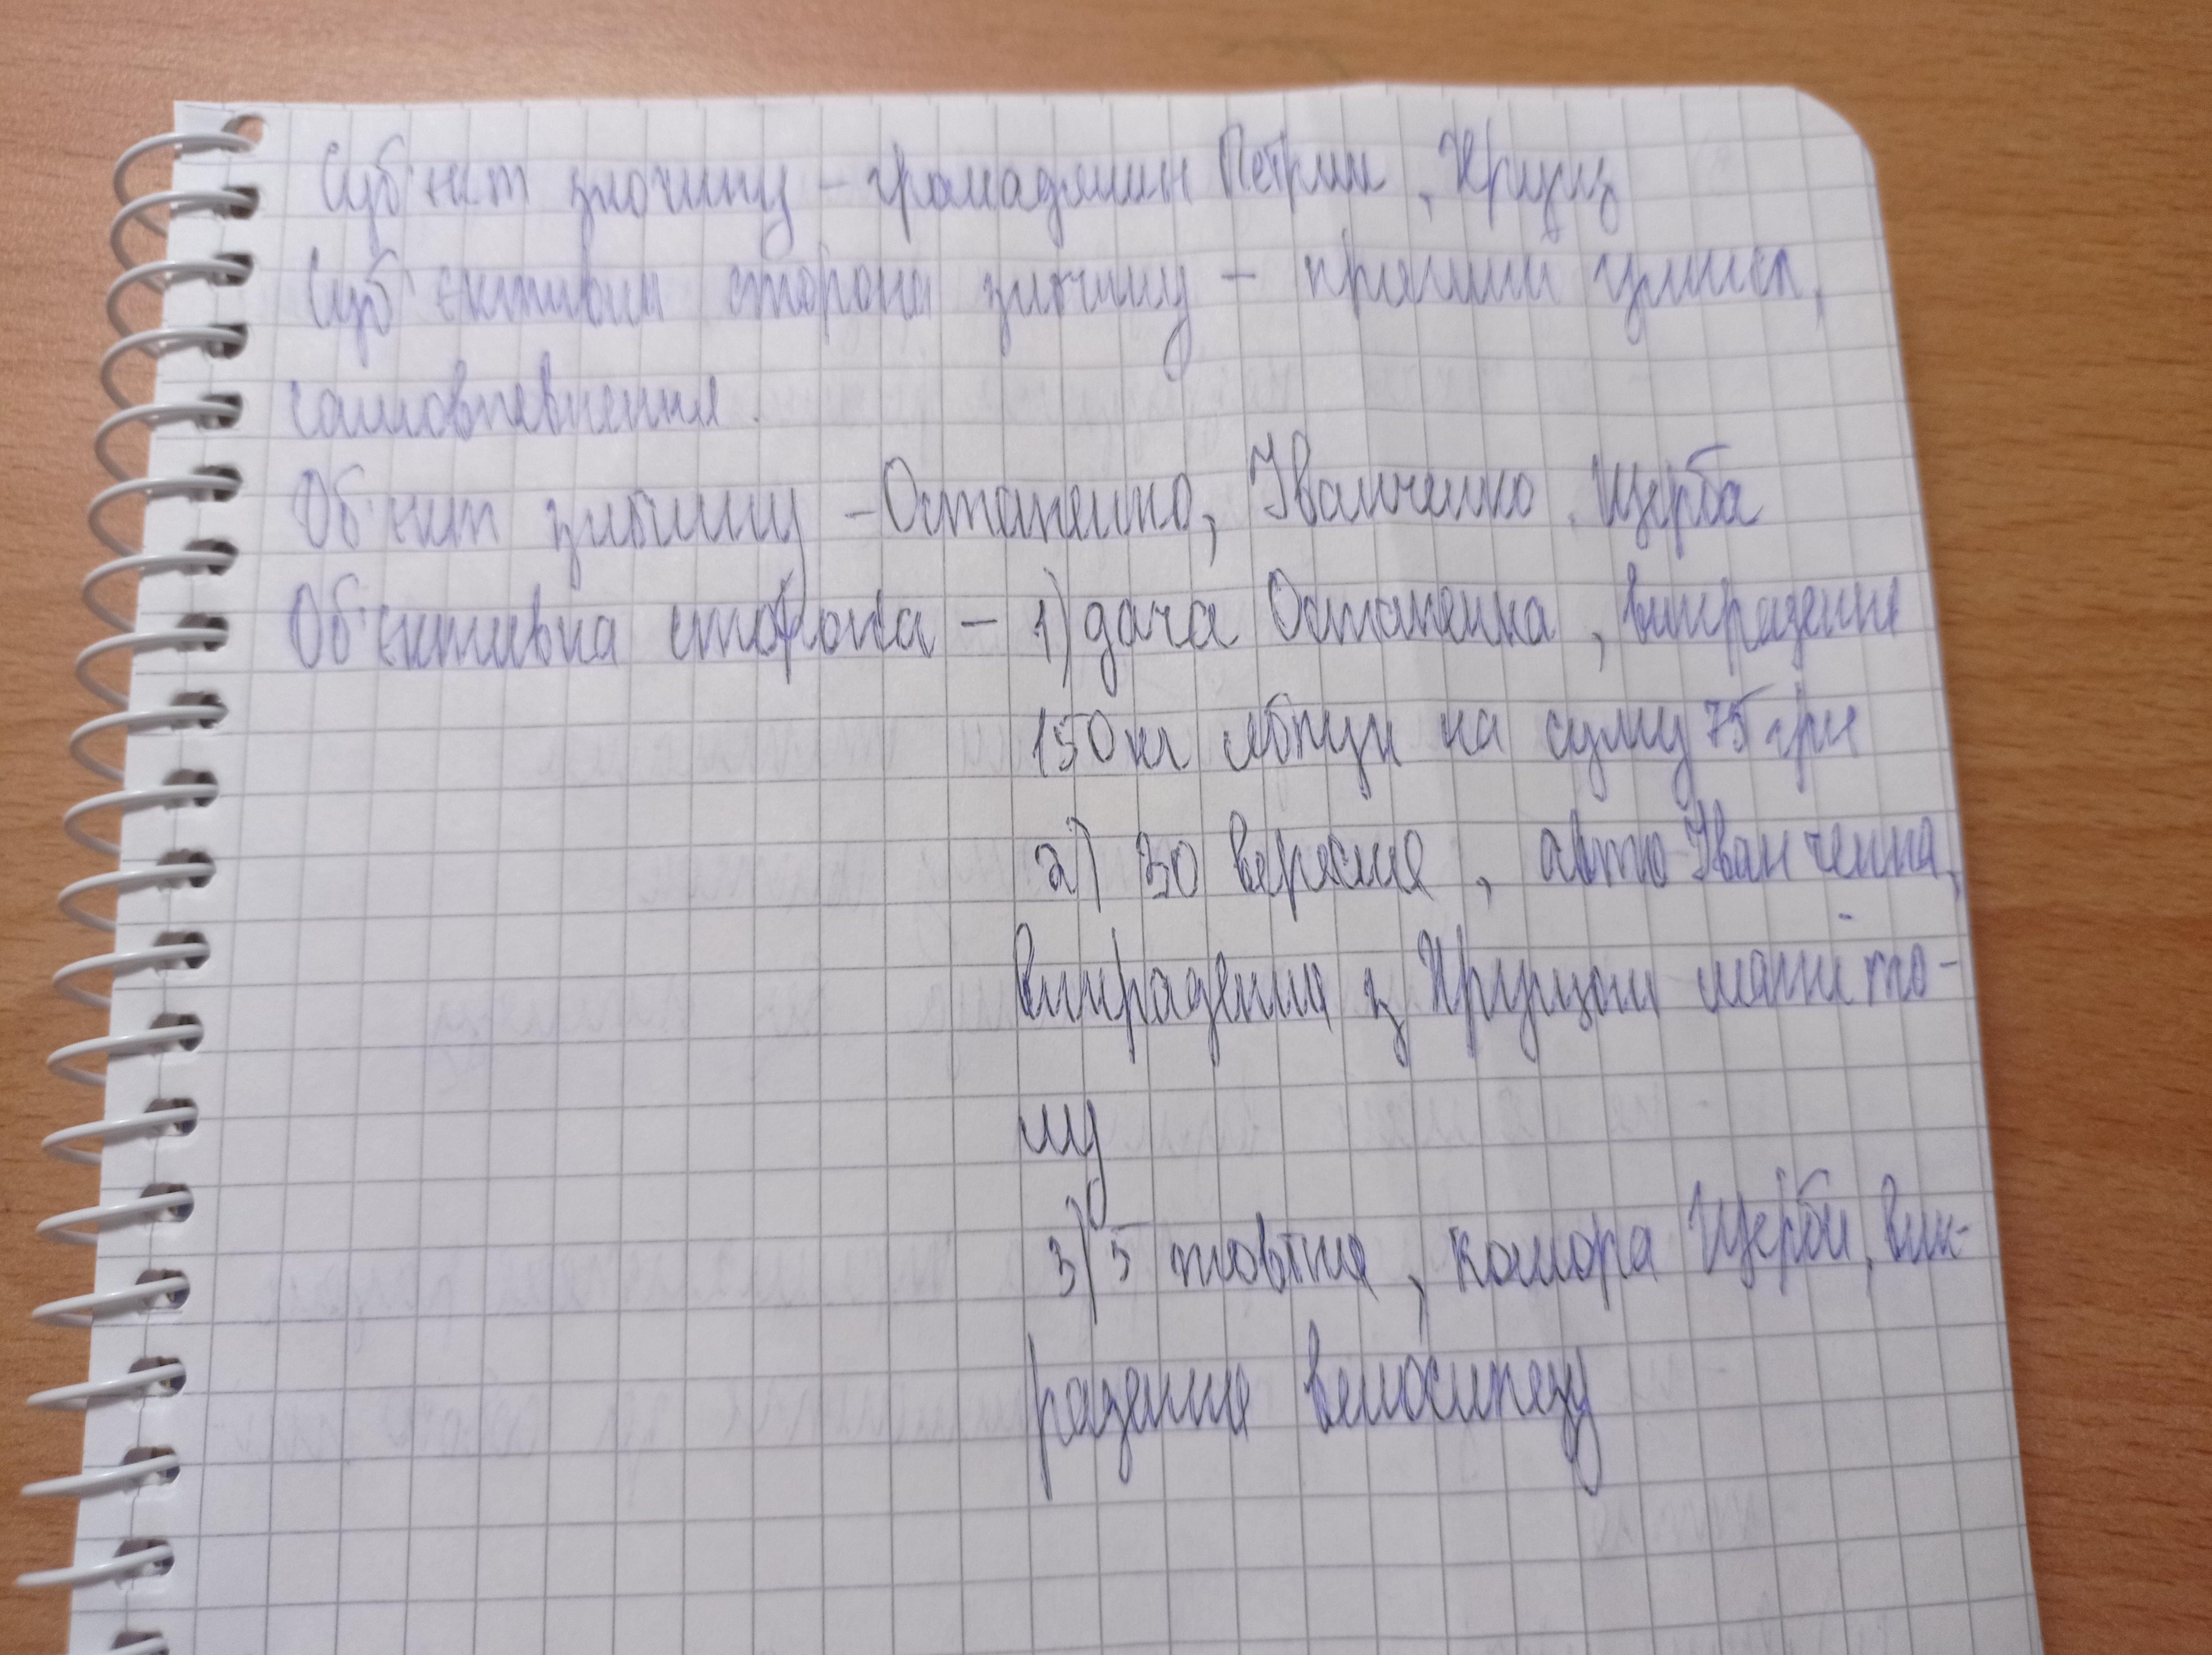 Суб'єкт злочину – громадянин Петрик, Кривуц
Суб'єктивна сторона злочину – прямий умисел,
самовпевнення.
Об'єкт злочину – Остапенко, Іванченко. Щерба
Об'єктивна сторона – 1) дача Остапенка, викрадення
150 кг яблук на суму 75 грн
2) 30 вересня, авто Іванченка,
викрадення з магніто-
лу
3) 5 жовтня, комора Щерби, вик-
радення велосипеду